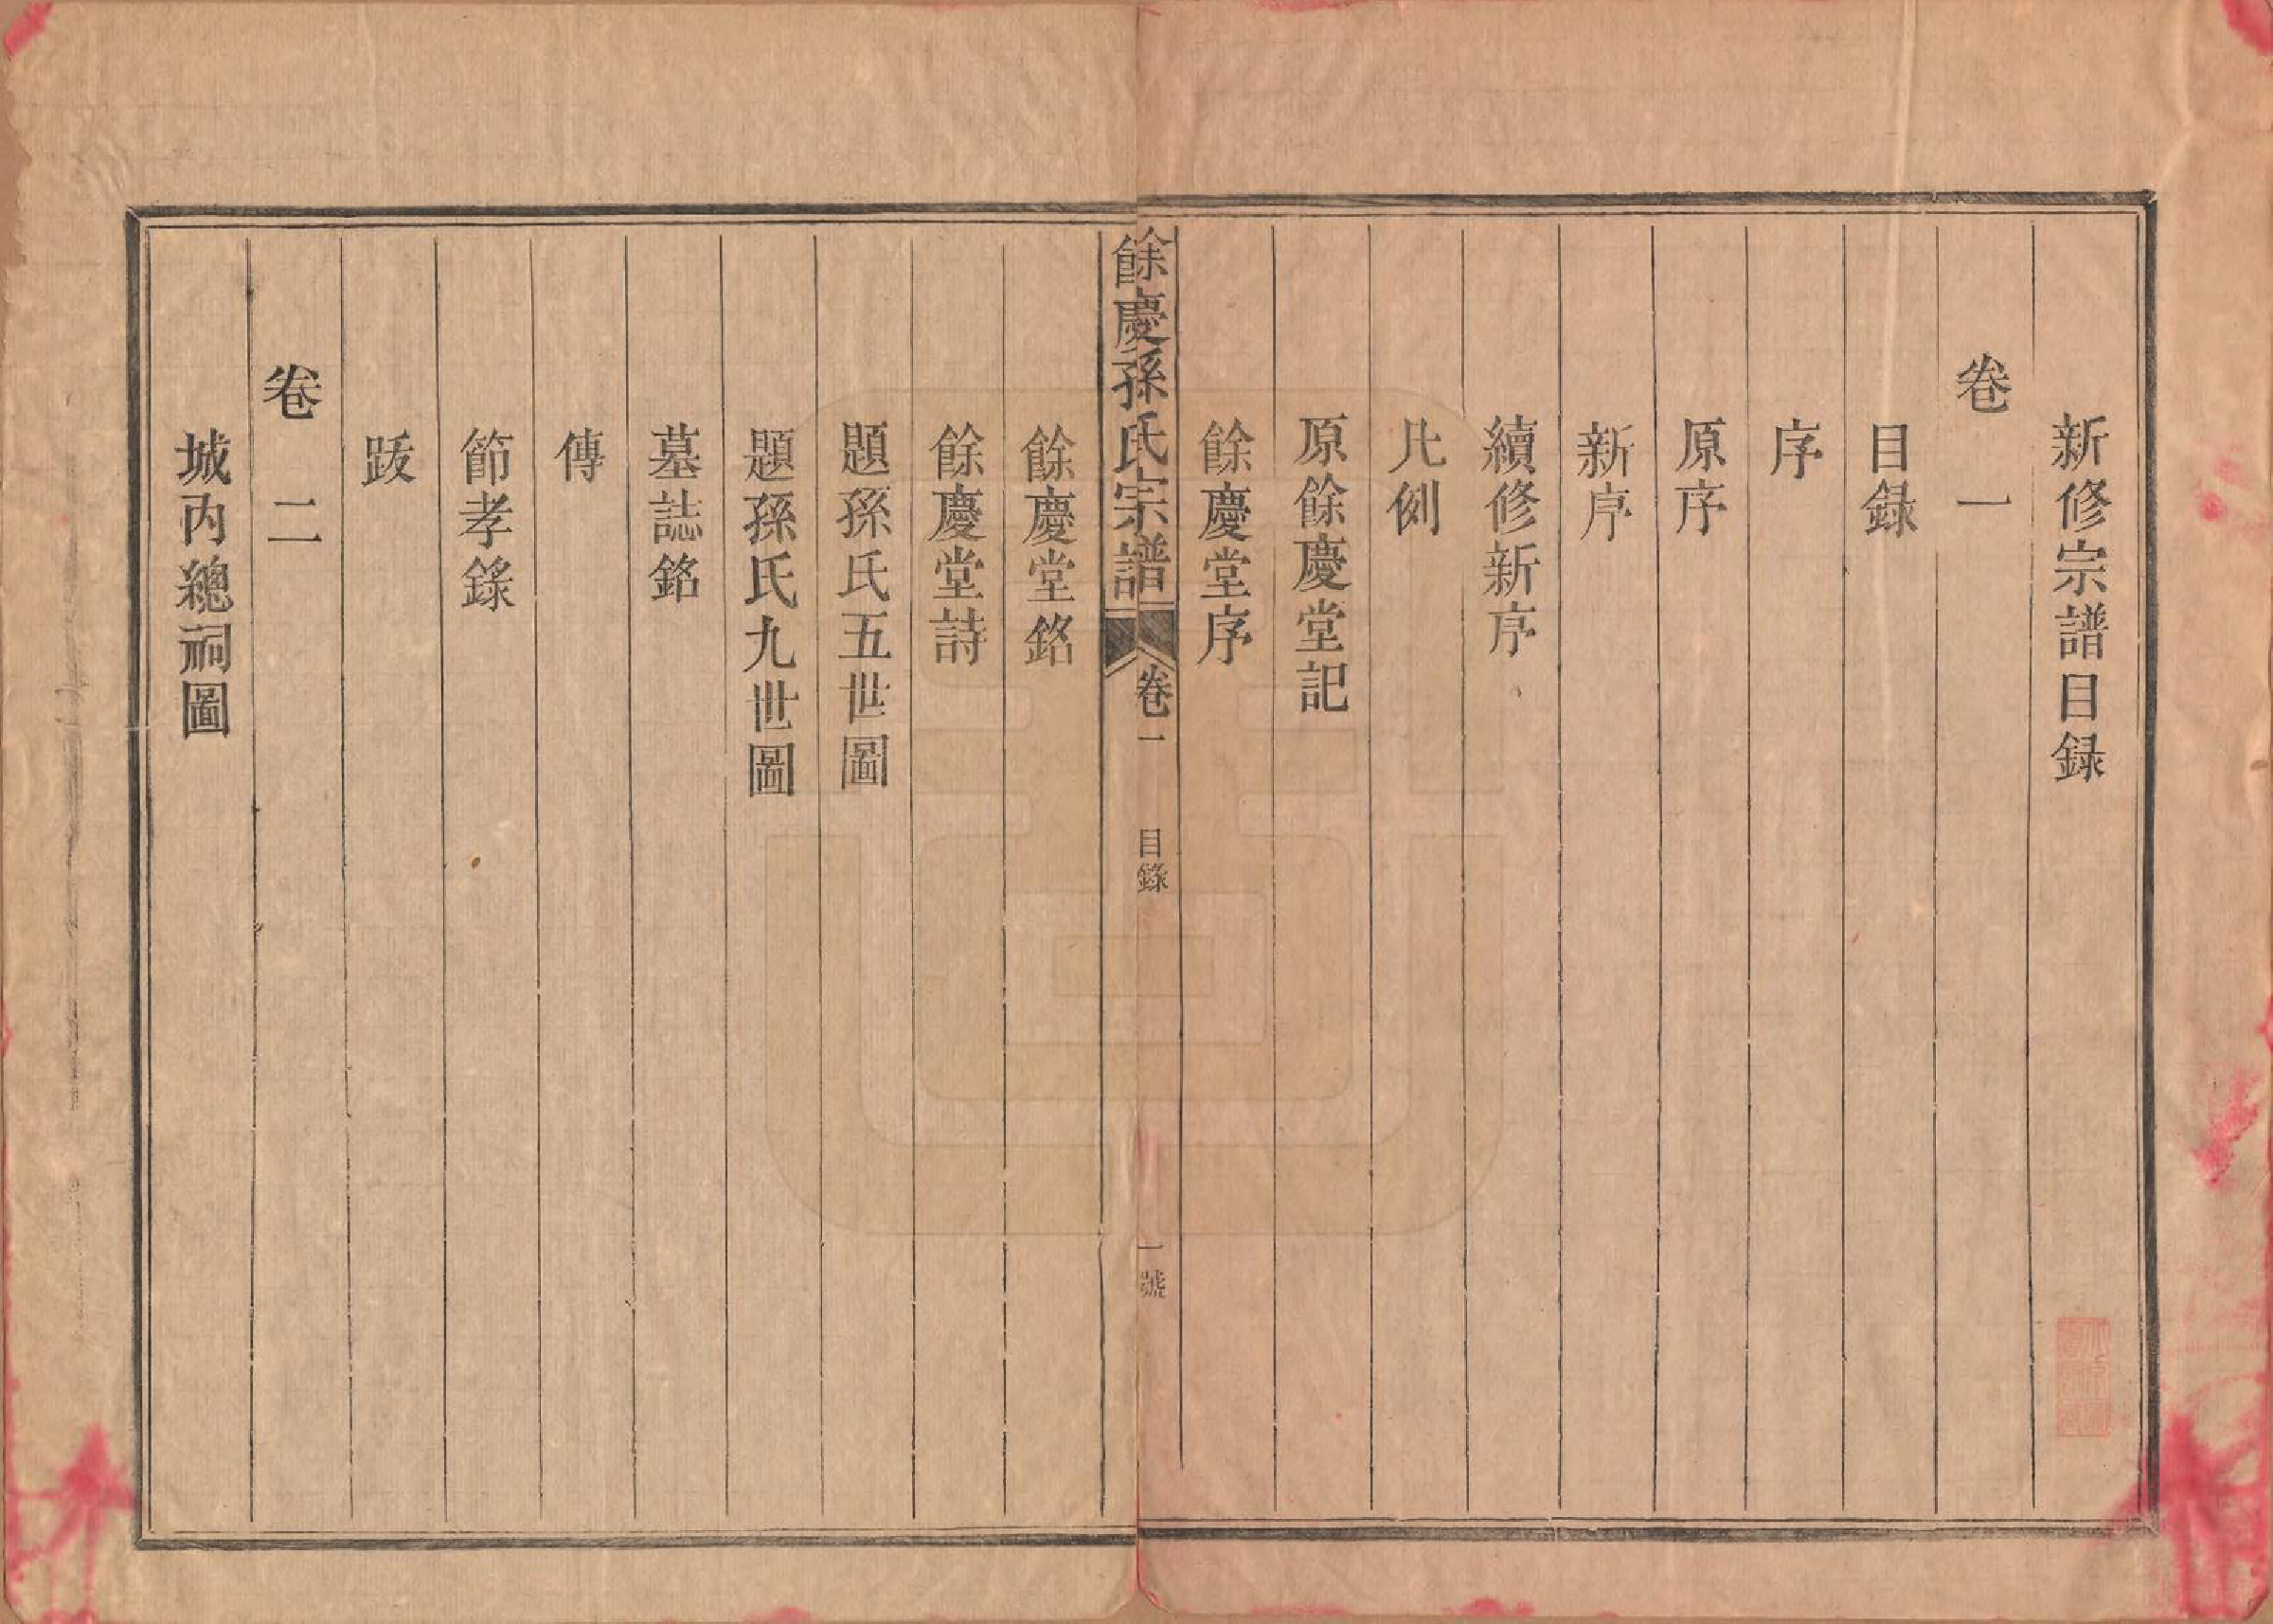 新修宗譜目録
卷一
目録
序
原序
新序
續修新序
凡例
原餘慶堂記
餘慶堂序
餘慶孫氏宗譜
卷一
目錄
一號
餘慶堂銘
餘慶堂詩
題孫氏五世圖
題孫氏九世圖
墓誌銘
傳
節孝錄
跋
卷二
城內總祠圖